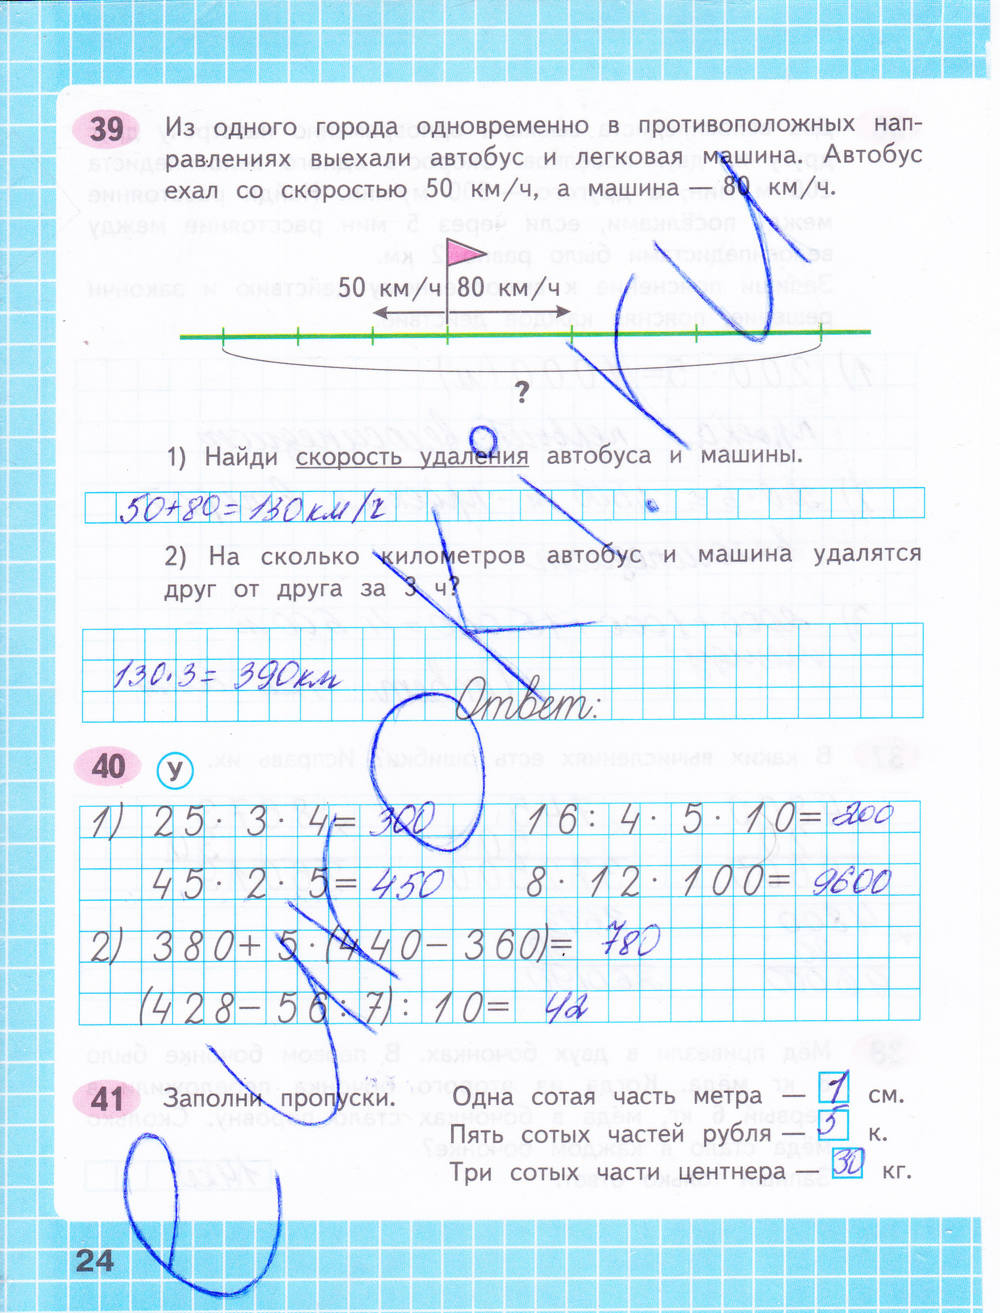 39 Из одного города одновременно в противоположных нап-
равлениях выехали автобус и легковая машина. Автобус
ехал со скоростью 50 км/ч, а машина — 80 км/ч.
50 км/ч 80 км/ч
?
1) Найди скорость удаления автобуса и машины.
50+80=130 км/ч
2) На сколько километров автобус и машина удалятся
друг от друга за 3 ч?
130·3= 390км
Ответ:
40 У
1) 25·3·4= 300 16:4·5·10= 200
45·2·5= 450 8·12·100= 9600
2) 380+5·(440-360)= 780
(428-56:7):10= 42
41 Заполни пропуски. Одна сотая часть метра — 1 см.
Пять сотых частей рубля — 5 к.
Три сотых части центнера — 30 кг.
24